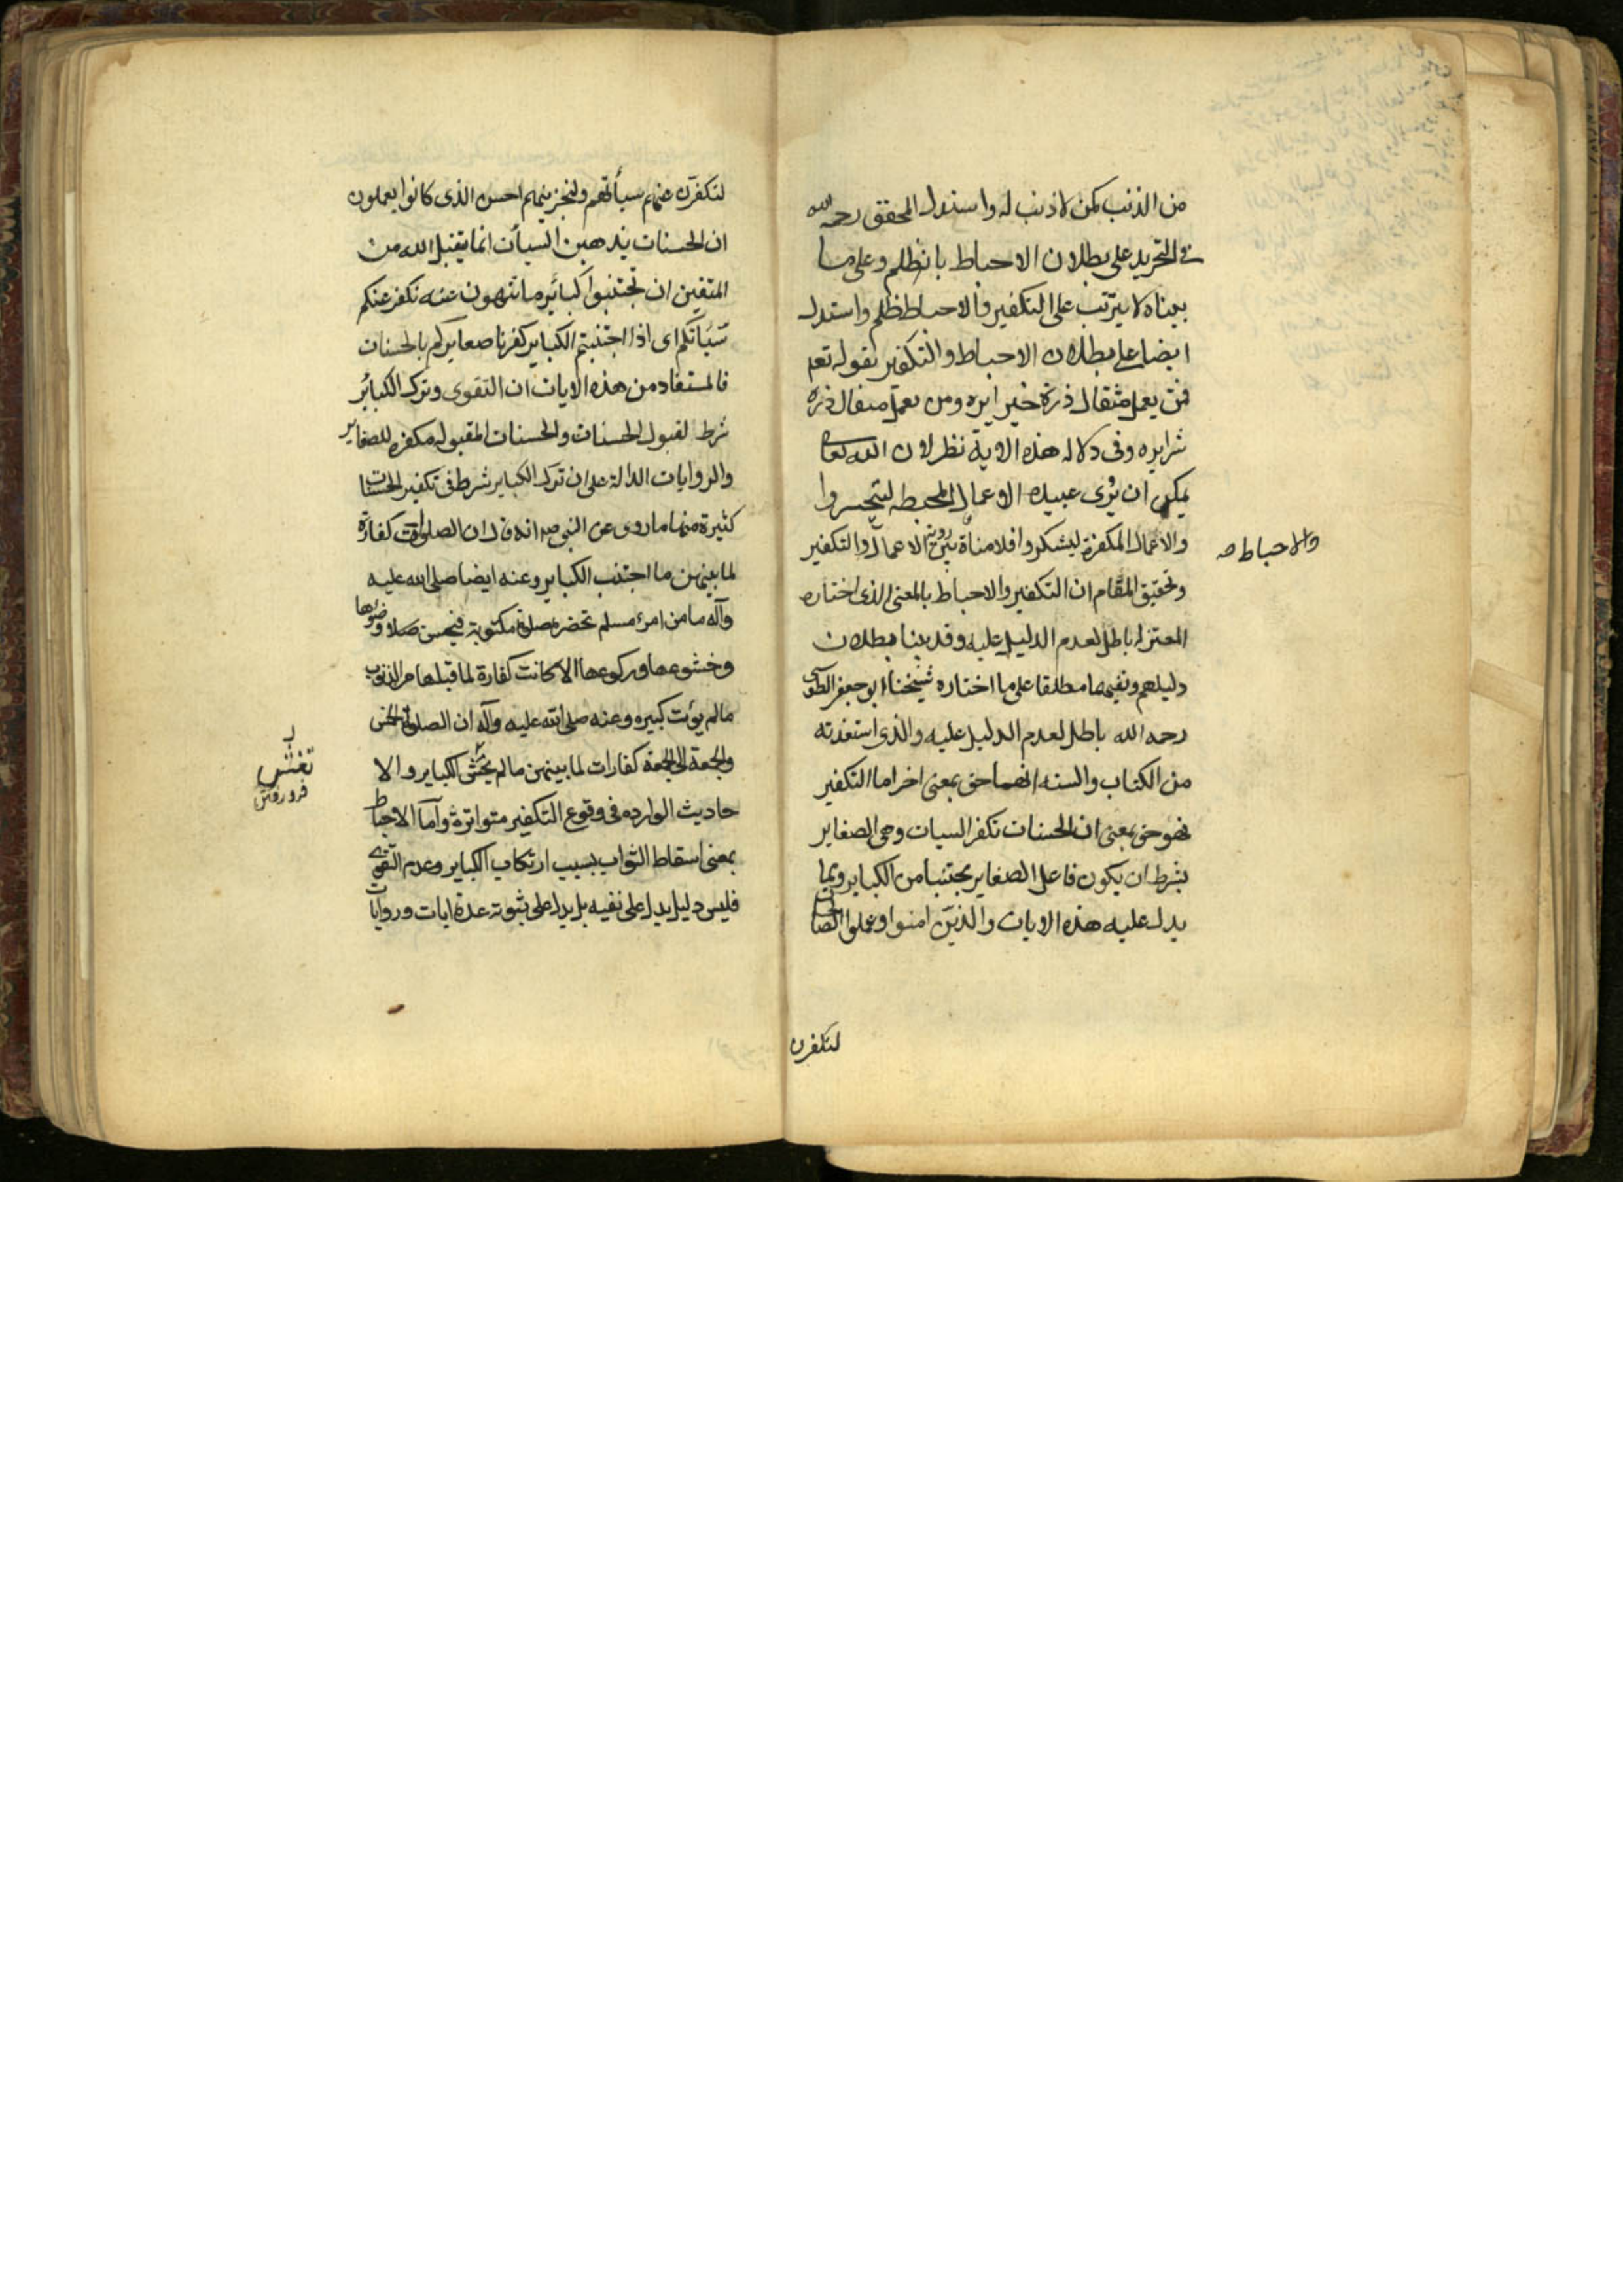 من الذنب كمن لا ذنب له واستدل المحقق رحمه الله
في التجريد على بطلان الاحباط بانه ظلم وعلى ما
بيناه لا يترتب على التكفير والاحباط ظلم واستدل
ايضا على بطلان الاحباط والتكفير بقوله تعم
فمن يعمل مثقال ذرة خيرا يره ومن يعمل مثقال ذرة
شرا يره وفى دلالة هذه الاية نظر لان الله تعالى
يمكن ان يرى عبيده الاعمال المحبطه ليتحسروا
والاعمال المكفرة ليشكروا فلا مناة بين رؤية الاعمال والتكفير
والاحباط صح
وتحقيق المقام ان التكفير والاحباط بالمعنى الذى اختاره
المعتزله باطل لعدم الدليل عليه وقد بينا بطلان
دليلهم ونفيهما مطلقا على ما اختاره شيخنا ابو جعفر الطوسى
رحمه الله باطل لعدم الدليل عليه والذى استفدته
من الكتاب والسنه انهما حق بمعنى اخر اما التكفير
فهو حق بمعنى ان الحسنات تكفر السيات وهى الصغاير
بشرط ان يكون فاعل الصغاير مجتنبا من الكباير ومما
يدل عليه هذه الايات والذين امنوا وعملوا الصالحات
لنكفرن
لنكفرن عنهم سيأتهم ولنجزينهم احسن الذى كانوا يعملون
ان الحسنات يذهبن السيأت انما يتقبل الله من
المتقين ان تجتنبوا كبائر ما تنهون عنه نكفر عنكم
سيأتكم اى اذا اجتنبتم الكباير كفرنا صغايركم بالحسنات
فالمستفاد من هذه الايات ان التقوى وترك الكبائر
شرط لقبول الحسنات والحسنات المقبوله مكفره للصغاير
والروايات الدالة على ان ترك الكباير شرط فى تكفير الحسنات
كثيرة منها ما روى عن النبى ص انه قال ان الصلوات كفارة
لما بينهن ما اجتنب الكباير وعنه ايضا صلى الله عليه
وآله ما من امرء مسلم تحضره صلوة مكتوبة فيحسن وضوءها
وخشوعها وركوعها الا كانت كفارة لما قبلها من الذنوب
ما لم يؤت كبيره وعنه صلى الله عليه وآله ان الصلوة الخمس
والجمعة الى الجمعة كفارات لما بينهن ما لم يغش الكباير والا
تغش
فرو رفتن
حاديث الوارده فى وقوع التكفير متواترة وأما الاحباط
بمعنى اسقاط الثواب بسبب ارتكاب الكباير وعدم التقوى
فليس دليل يدل على نفيه بل يدل على ثبوته عدة ايات وروايات